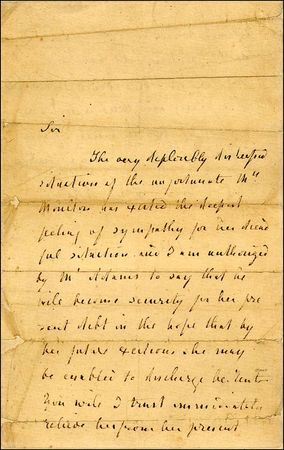 Sir
The very deplorably distressed
situation of the unfortunate Mrs
Moulton has excited the deepest
feeling of sympathy for her dread
ful situation and I am authorized
by Mr Adams to say that he
will become security for her pre
sent debt in the hope that by
her future exertions she may
be enabled to discharge
You will I trust immediately
relieve her from her present